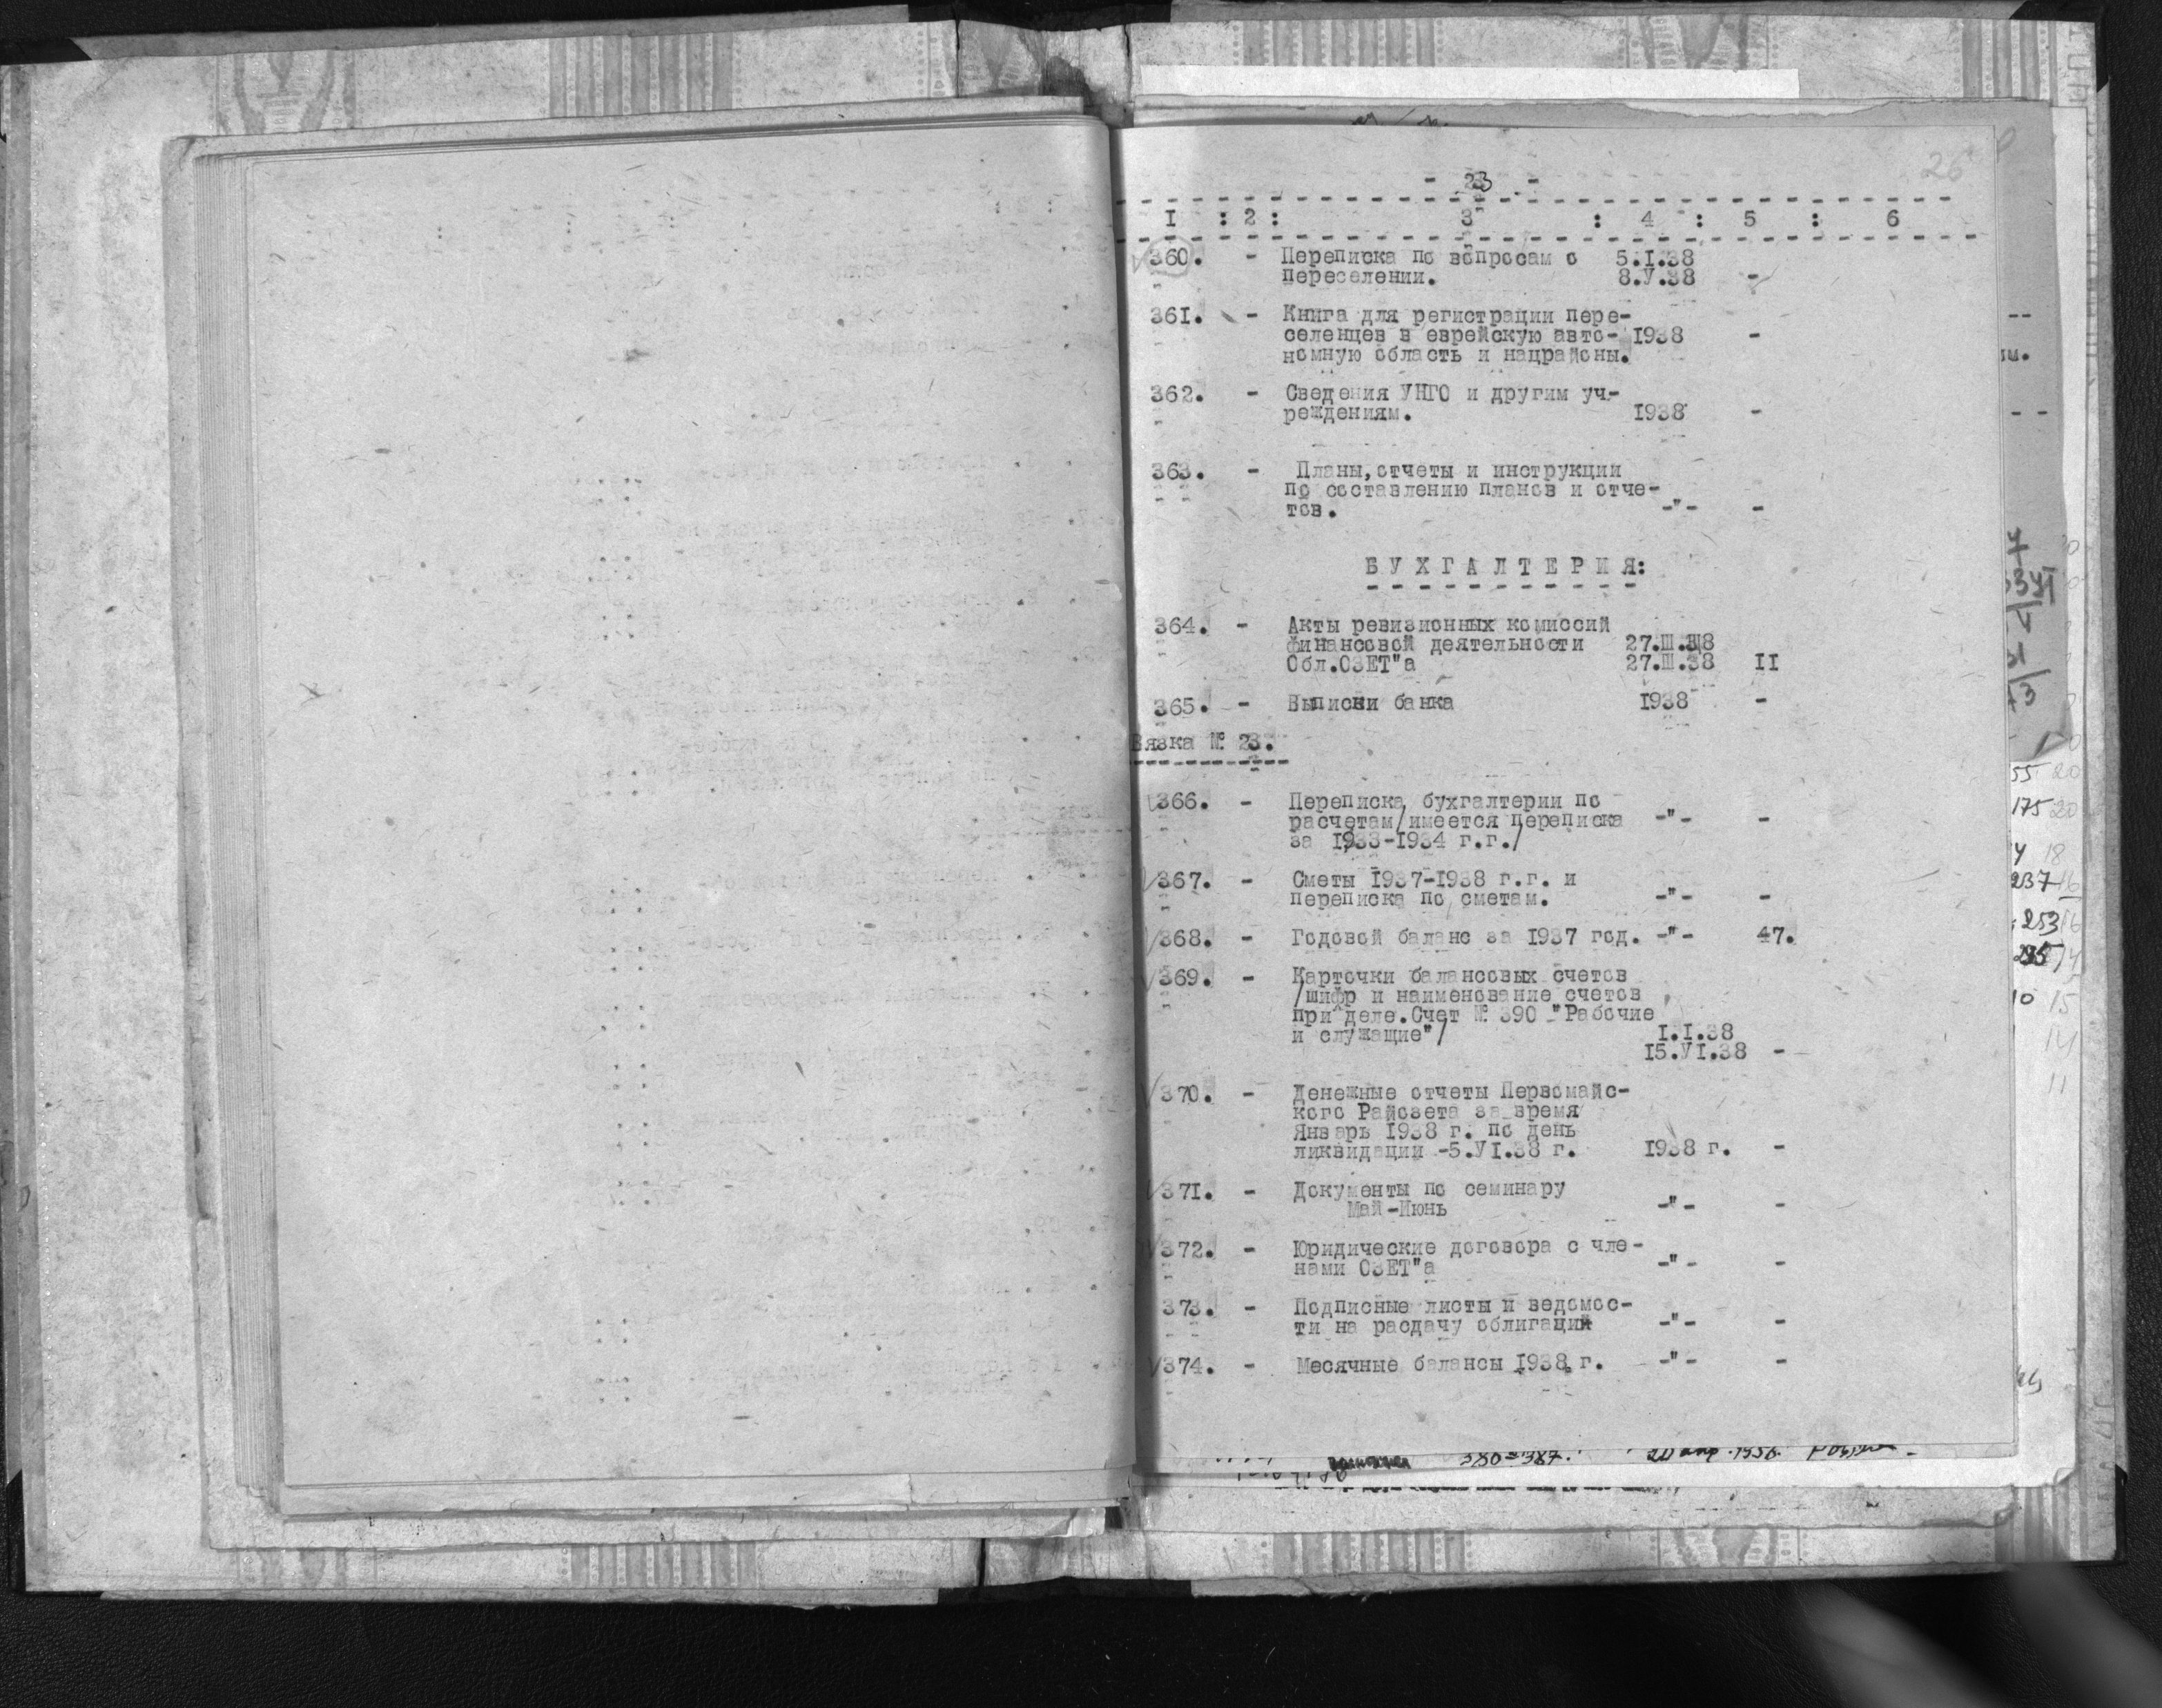 26
- 23 -
I : 2 : 3 : 4 : 5 : 6
360. - Переписка по вопросам о 5.I.38
переселении. 8.V.38 -
361. - Книга для регистрации пере-
селенцев в еврейскую авто- 1938 -
номную область и нацрайоны.
362. - Сведения УНГО и другим уч-
реждениям. 1938 -
363. - Планы, отчеты и инструкции
по составлению планов и отче-
тов. -"- -
БУХГАЛТЕРИЯ:
364. - Акты ревизионных комиссий
финансовой деятельности 27.III.38
Обл.ОЗЕТ"а 27.III.38 II
365. - Выписки банка 1938 -
Вязка № 23.
366. - Переписка бухгалтерии по
расчетам/имеется переписка -"- -
за 1933-1934 г.г./
367. - Сметы 1937-1938 г.г. и
переписка по сметам. -"- -
368. - Годовой баланс за 1937 год. -"- 47.
369. - Карточки балансовых счетов
/шифр и наименование счетов
при деле.Счет № 390 "Рабочие
и служащие"/ I.I.38
15.VI.38 -
370. - Денежные отчеты Первомайс-
кого Райозета за время
Январь 1938 г. по день
ликвидации -5.VI.38 г. 1938 г. -
371. - Документы по семинару
Май-Июнь -"- -
372. - Юридические договора с чле-
нами ОЗЕТ"а -"- -
373. - Подписные листы и ведомос-
ти на расдачу облигаций -"- -
374. - Месячные балансы 1938 г. -"- -
380-387.